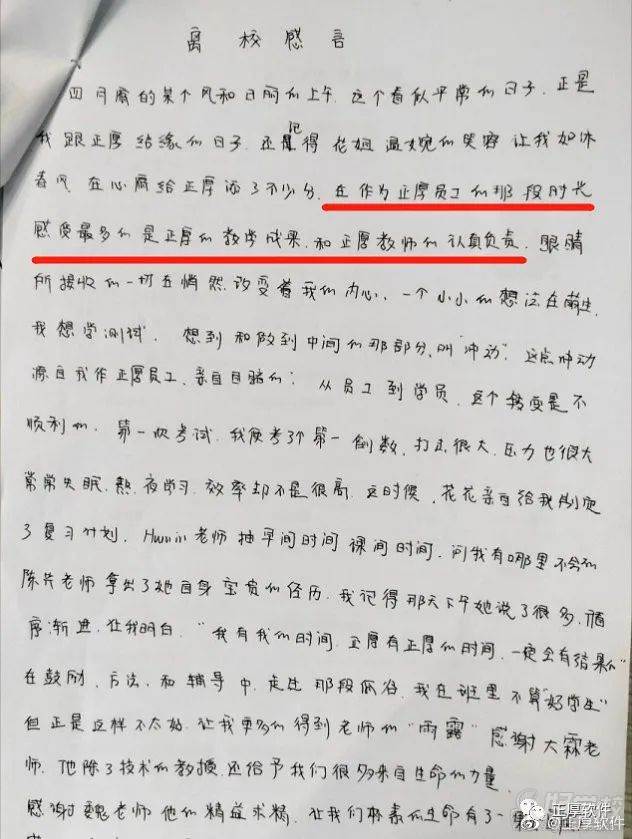 离校感言
四月底的某个风和日丽的上午,这个看似平常的日子,正是
我跟正厚结缘的日子,还记得花姐温婉的笑容让我如沐
春风,在心底给正厚添了不少分,在作为正厚员工的那段时光
感受最多的是正厚的教学成果,和正厚教师的认真负责,眼睛
所接收的一切在悄然改变着我的内心,一个小小的想法在萌生,
我想学测试。想到和做到中间的那部分,叫"冲动"。这点冲动
源自我作正厚员工,亲自目睹的。从员工到学员,这个转变是不
顺利的,第一次考试,我便考了个第一倒数,打击很大,压力也很大
常常失眠,熬夜学习,效率却不是很高,这时候,花花亲自给我制定
了复习计划,老师抽早间时间课间时间,问我有哪里不会的
陈芹老师拿出了她自身宝贵的经历,我记得那天下午她说了很多,循
序渐进,让我明白,"我有我的时间,正厚有正厚的时间,一定会有结果的"
在鼓励、方法、和辅导中,走出那段低谷,我在班里不算"好学生"
但正是这样不太好,让我更多的得到老师的"雨露"感谢大霖老
师,他除了技术的教授,还给予我们很多来自生命的力量,
感谢魏老师他的精益求精,让我们的生命有了一
好学校
正厚软件
@正厚软件